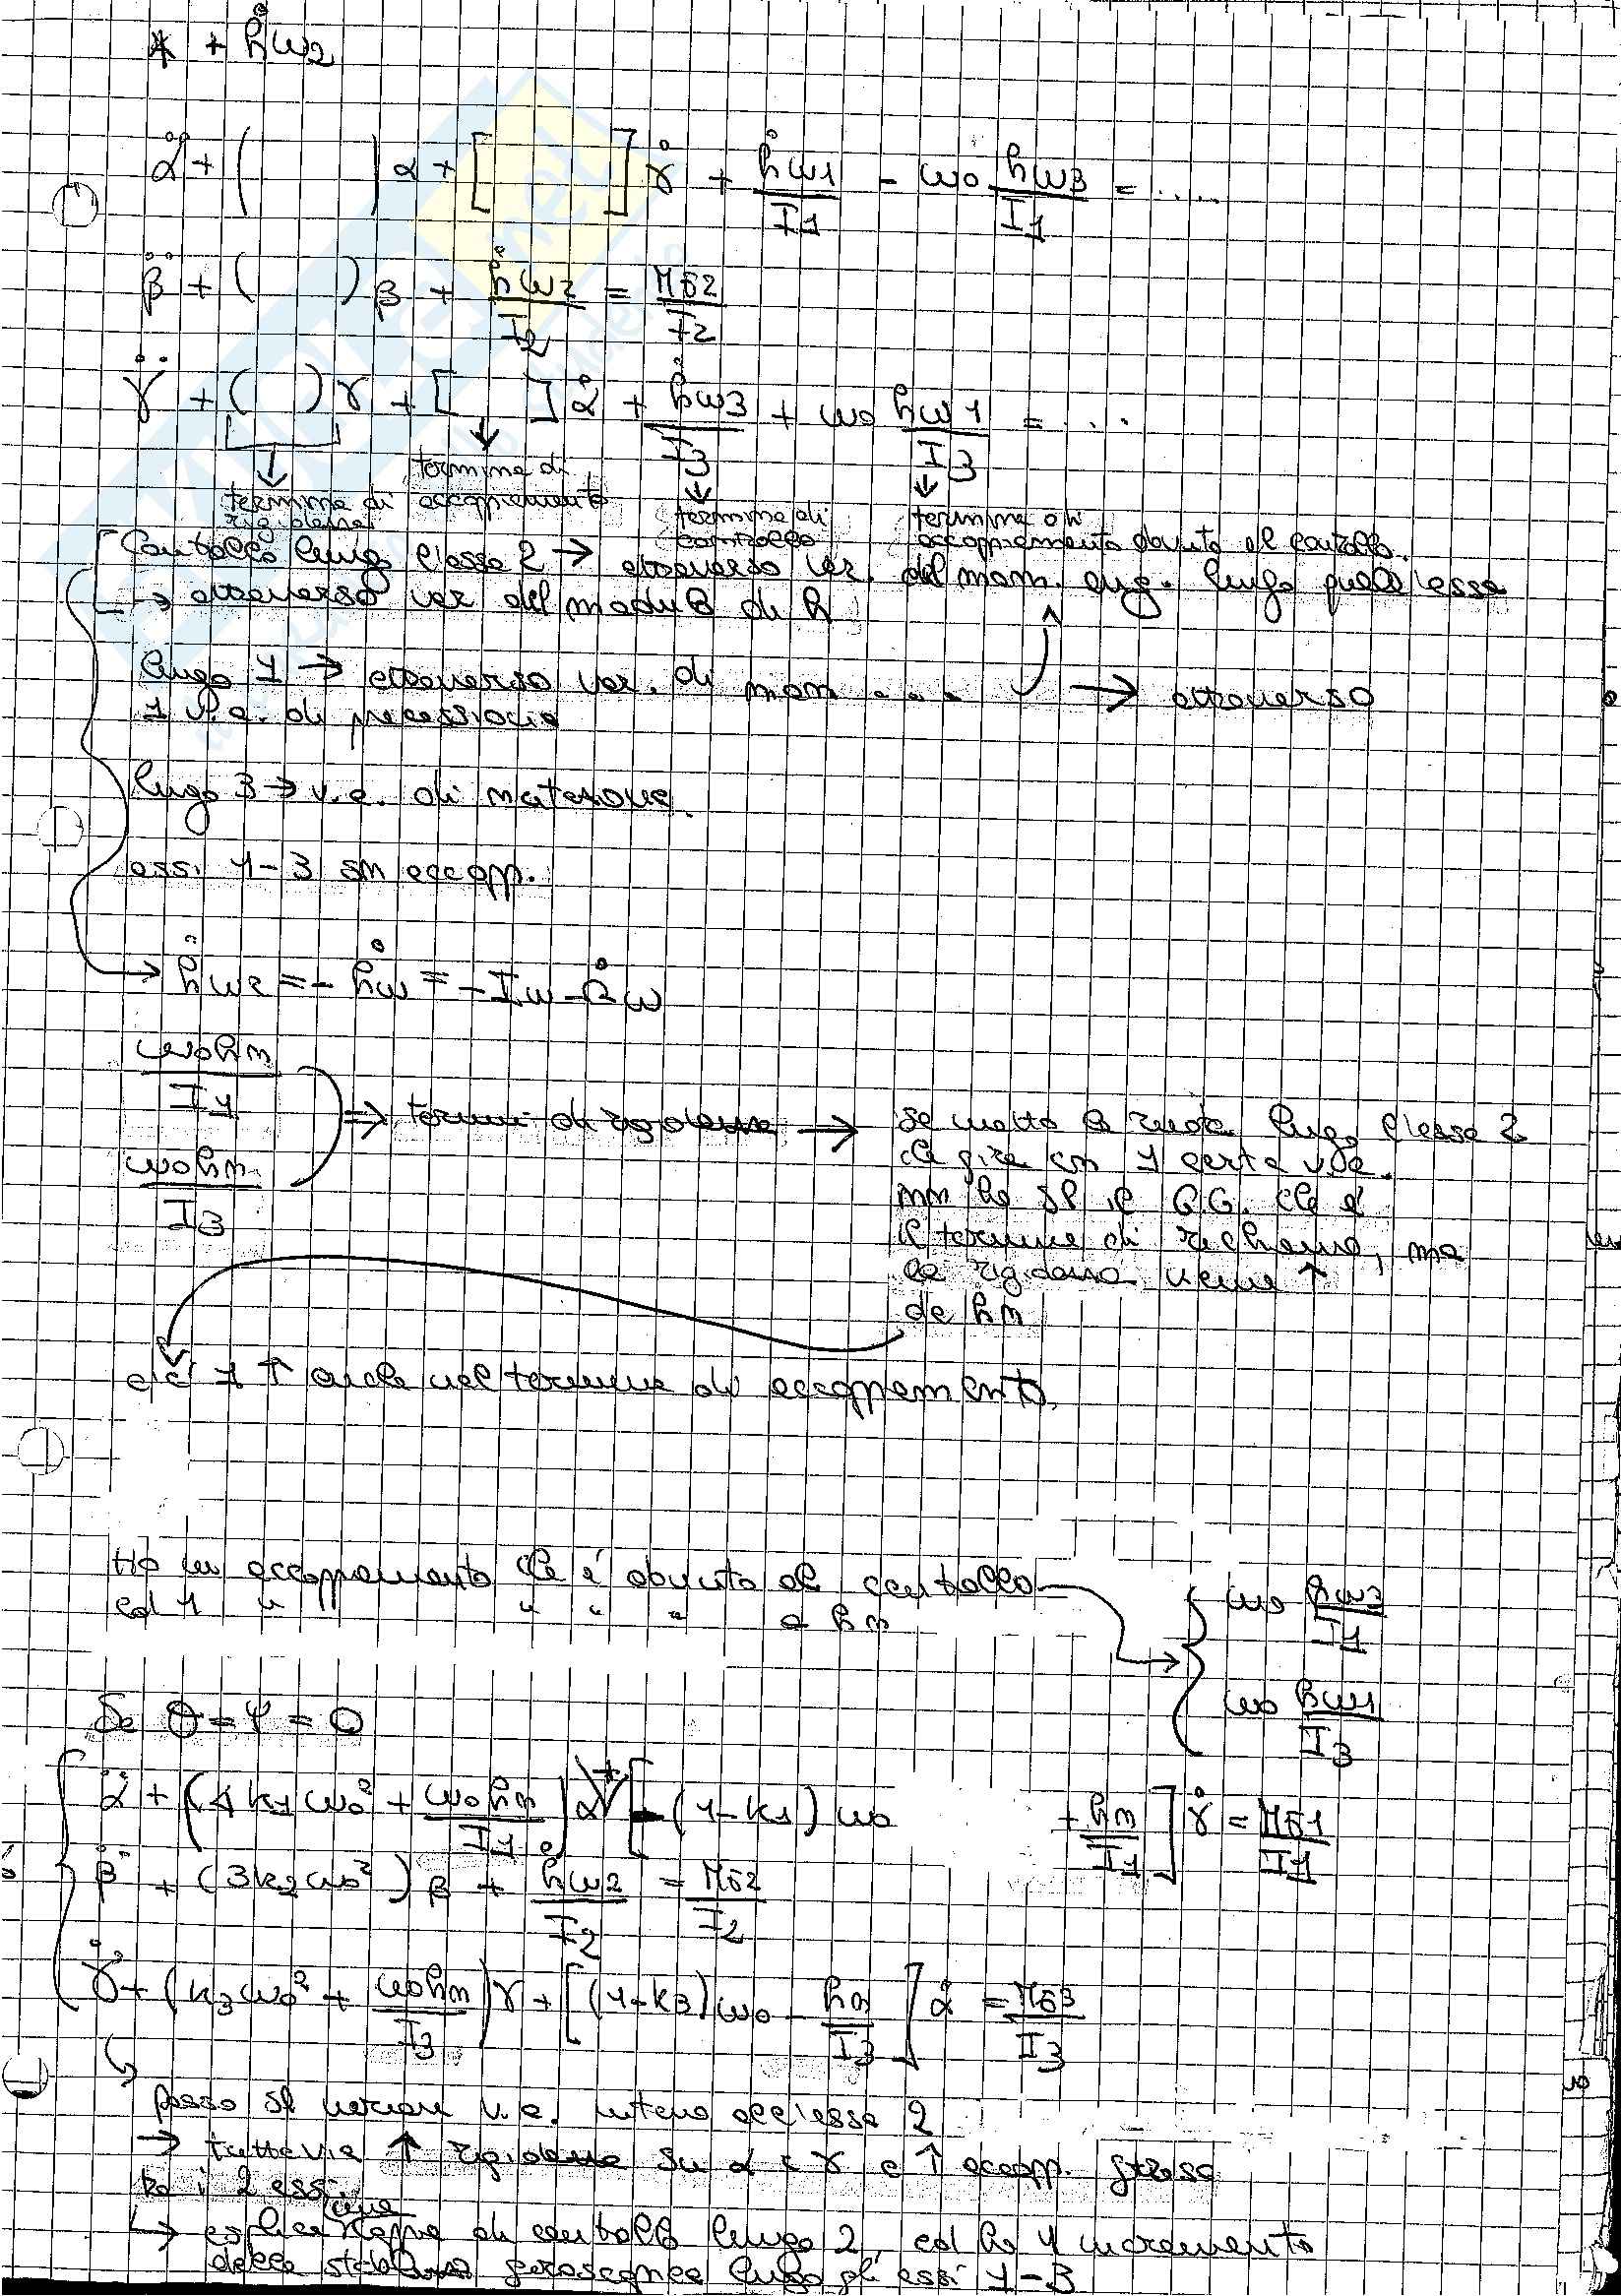 * + ḣw2
α̈ + ( ) α + [ ] γ̇ + ḣw1/I1 - ω0 hw3/I1 = ....
β̈ + ( ) β + ḣw2/I2 = Mδ2/I2
γ̈ + ( ) γ + [ ] α̇ + ḣw3/I3 + ω0 hw1/I3 = ...
termine di rigidezza
termine di accoppiamento
termine di controllo
termine di accoppiamento dovuto al controllo.
Controllo lungo l'asse 2 → attraverso var. del mom. ang. lungo quell'asse
→ attraverso var del modulo di h
lungo 1 → attraverso var. di mom .... → attraverso
1 v.a. di precessione
lungo 3 → v.a. di nutazione.
assi 1-3 sn accopp.
→ ḣw2 = - ḣw = - Iw Ω̇w
ω0hn/I1
ω0hn/I3
⇒ termini di rigidezza → se metto la ruota lungo l'asse 2
che gira cn 1 certa v.a.
nn ho sl il G.G. che è
il termine di richiamo, ma
la rigidezza viene ↑
da hn
c'è 1 ↑ anche nel termine di accoppiamento.
Ho un accoppiamento che è dovuto al controllo
ed 1 " " " " a hn
ω0 hw3/I1
ω0 hw1/I3
Se θ = ψ = 0
α̈ + (4k1ω0² + ω0hn/I1) α + [-(1-k1) ω0 + hn/I1] γ̇ = Mδ1/I1
β̈ + (3k2ω0²) β + ḣw2/I2 = Mδ2/I2
γ̈ + (k3ω0² + ω0hn/I3) γ + [(1-k3) ω0 - hn/I3] α̇ = Mδ3/I3
posso sl variare v.a. intorno all'asse 2
→ tuttavia ↑ rigidezza su α e γ e ↑ accopp.
tra i 2 assi.
↳ coppia di controllo lungo 2, ed ho 1 incremento
della lungo gli assi 1-3